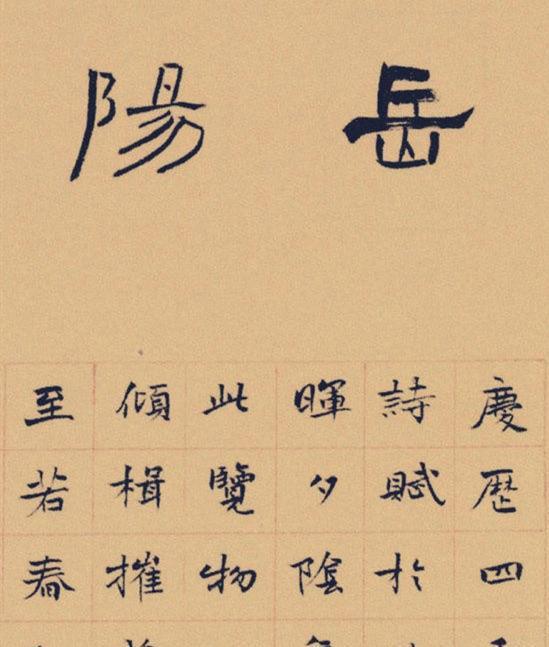 岳陽
慶歷四
詩賦於
暉夕陰
此覽物
傾楫摧
至若春